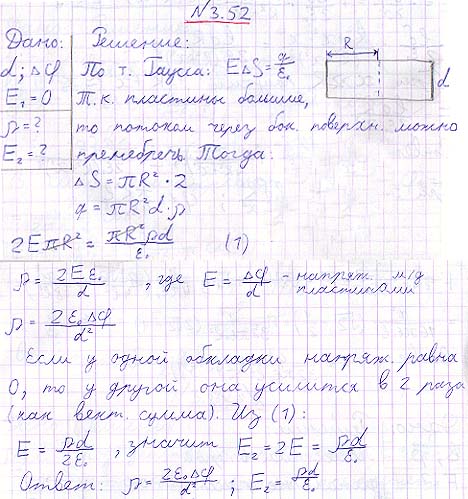 №3.52
Дано: Решение:
d; Δφ По т. Гаусса: EΔS = q/ε₀
R
d
E₁ = 0 Т.к. пластины большие,
ρ = ? то потоком через бок. поверхн. можно
E₂ = ? пренебречь. Тогда:
ΔS = πR² · 2
q = πR²d · ρ
2EπR² = πR²ρd/ε₀ (1)
ρ = 2Eε₀/d , где E = Δφ/d - напряж. м/д пластинами
ρ = 2ε₀Δφ/d²
Если у одной обкладки напряж. равна
0, то у другой она усилится в 2 раза
(как вект. сумма). Из (1):
E = ρd/2ε₀ , значит E₂ = 2E = ρd/ε₀
Ответ: ρ = 2ε₀Δφ/d² ; E₂ = ρd/ε₀